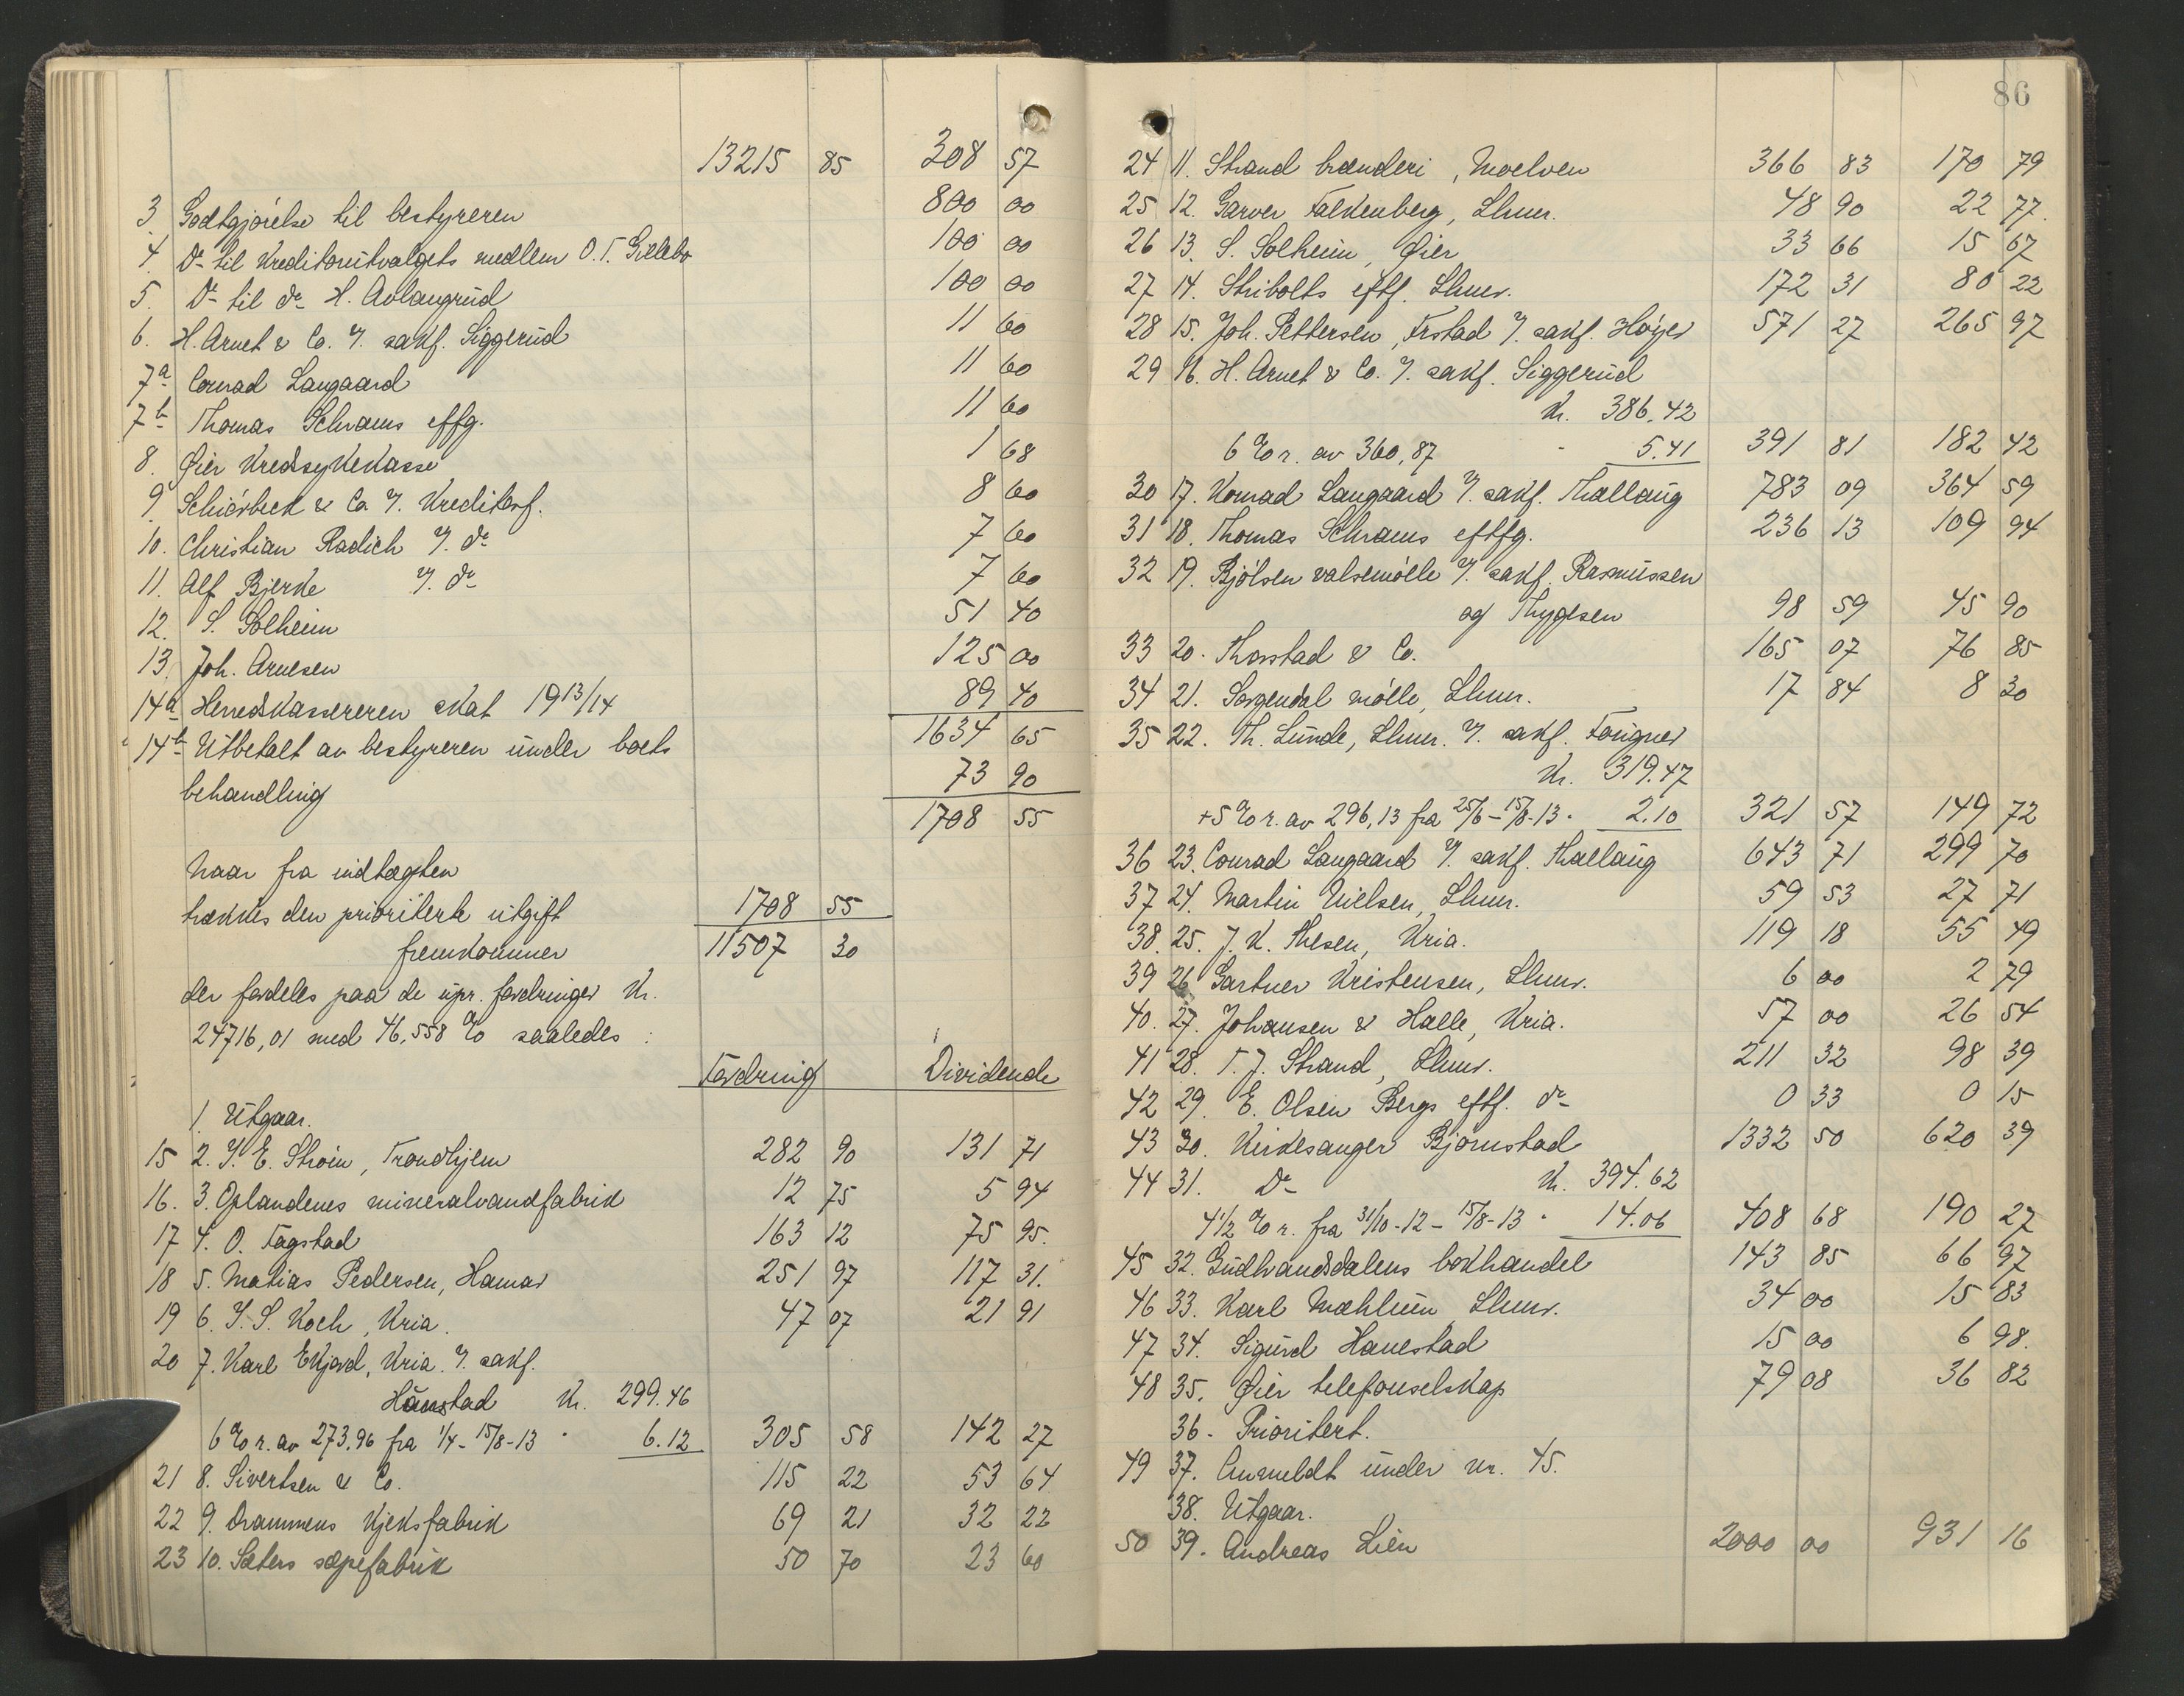 13215 85 308 57
3. Godtgjørelse til bestyreren 800 00
4. Do til Kreditorutvalgets medlem O. T. Gillebo 100 00
5. Do til do H. Avlangrud 100 00
6. H. Arnet & Co. v. sakf. Siggerud 11 60
7a Conrad Langaard 11 60
7b Thomas Schrams effg. 11 60
8. Øier Kredssykekasse 1 68
9. Schiørbeck & Co v. Kreditorf. 8 60
10. Christian Radich v. do 7 60
11. Alf Bjerke v. do 7 60
12. S. Solheim 51 40
13. Joh. Arnesen 125 00
14a Herredskassereren skat 1913/14 89 40
1634 65
14b Utbetalt av bestyreren under boets
behandling 73 90
1708 55
Naar fra indtægten
trækkes den prioriterte utgift 1708 55
fremkommer 11507 30
der fordeles paa de upr. fordringer Kr.
24716,01 med 46,558 % saaledes :
Fordring Dividende
1. Utgaar.
15 2. I. E. Strøm, Trondhjem 282 90 131 71
16. 3. Oplandenes mineralvandfabrik 12 75 5 94
17 4. O. Fagstad 163 12 75 95.
18 5. Matias Pedersen, Hamar 251 97 117 31.
19 6. I. S. Koch, Kria. 47 07 21 91
20 7. Karl Ekjord, Kria. v. sakf.
Hanstad Kr. 299.46
6 % r. av 273.96 fra 1/4 - 15/8-13 " 6.12 305 58 142 27
21 8. Sivertsen & Co. 115 22 53 64
22 9. Drammens Kjeksfabrik 69 21 32 22
23 10. Sæters sæpefabrik 50 70 23 60
86
24 11. Strand brænderi, Moelven 366 83 170 79
25 12. Garver Falkenberg, Lhmr. 48 90 22 77.
26 13. S. Solheim, Øier 33 66 15 67
27 14. Stribolts eftf. Lhmr. 172 31 80 22
28 15. Joh. Pettersen, Frstad v. sakf. Høyer 571 27 265 97
29 16. H. Arnet & Co. v. sakf. Siggerud
Kr. 386.42
6 % r. av 360,87 - 5.41 391 81 182 42
30 17. Konrad Langaard v. sakf. Thallaug 783 09 364 59
31 18. Thomas Schrams eftfg. 236 13 109 94
32 19. Bjølsen valsemølle v. sakf. Rasmussen
og Thygesen 98 59 45 90
33 20. Thorstad & Co. 165 07 76 85
34 21. Sorgendal mølle, Lhmr. 17 84 8 30
35 22. Th. Lunde, Lhmr. v. sakf. Fougner
Kr. 319.47
+5 % r. av 296,13 fra 25/6 - 15/8-13 " 2.10 321 57 149 72
36 23. Conrad Langaard v. sakf. Thallaug 643 71 299 70
37 24. Martin Nielsen, Lhmr. 59 53 27 71
38. 25. J. K. Thesen, Kria. 119 18 55 49
39 26 Gartner Kristensen, Lhmr. 6 00 2 79
40. 27. Johansen & Halle, Kria. 57 00 26 54
41 28. T. J. Strand, Lhmr. 211 32 98 39
42 29. E. Olsen Bergs eftf. do 0 33 0 15
43 30. Kirkesanger Bjørnstad 1332 50 620 39
44 31. Do Kr. 394.62
4 1/2 % r. fra 31/10-12 - 15/8-13 " 14.06 408 68 190 27
45 32. Gudbrandsdalens bokhandel 143 85 66 97
46 33. Karl Mæhlum, Lhmr. 34 00 15 83
47 34. Sigurd Hanestad 15 00 6 98.
48 35. Øier telefonselskap 79 08 36 82
36. Prioritert.
49 37. Anmeldt under nr. 45.
38. Utgaar.
50 39. Andreas Lien 2000 00 931 16